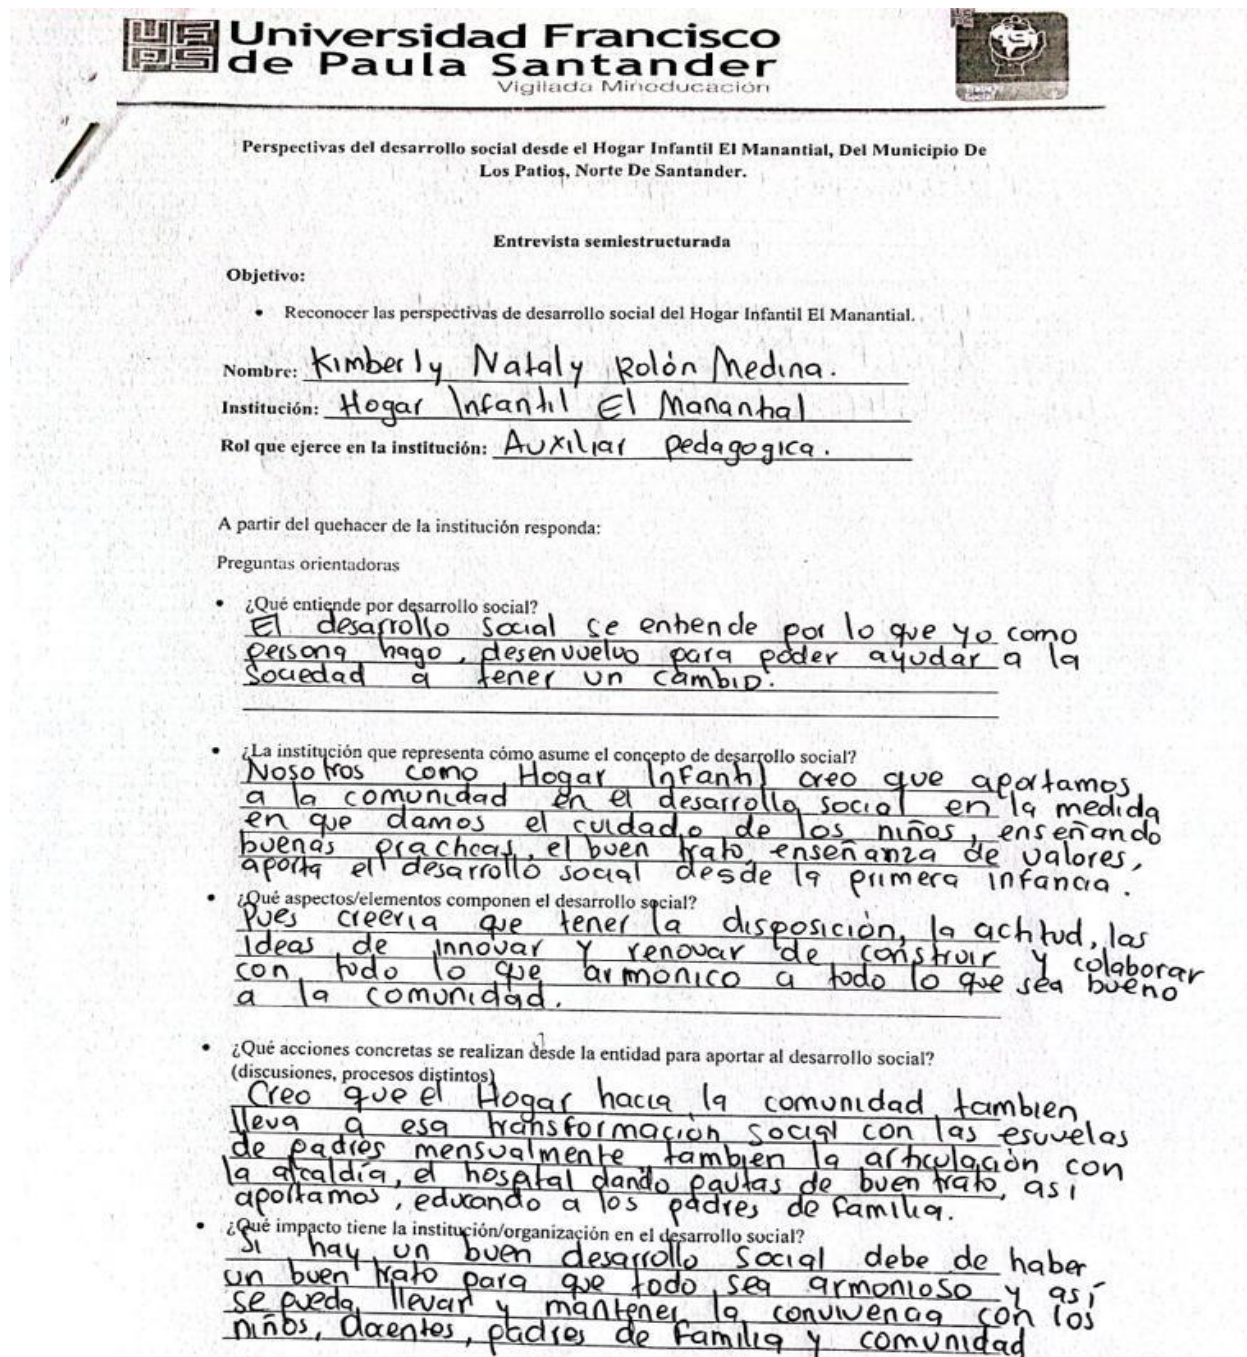 UFPS Universidad Francisco
de Paula Santander
Vigilada Mineducación
Perspectivas del desarrollo social desde el Hogar Infantil El Manantial, Del Municipio De
Los Patios, Norte De Santander.
Entrevista semiestructurada
Objetivo:
• Reconocer las perspectivas de desarrollo social del Hogar Infantil El Manantial.
Nombre: Kimberly Nataly Rolón Medina.
Institución: Hogar Infantil El Manantial
Rol que ejerce en la institución: Auxiliar pedagogica.
A partir del quehacer de la institución responda:
Preguntas orientadoras
• ¿Qué entiende por desarrollo social?
El desarrollo social se entiende por lo que yo como
persona hago, desenvuelvo para poder ayudar a la
sociedad a tener un cambio.
• ¿La institución que representa cómo asume el concepto de desarrollo social?
Nosotros como Hogar Infantil creo que aportamos
a la comunidad en el desarrollo social en la medida
en que damos el cuidado de los niños, enseñando
buenas practicas, el buen trato, enseñanza de valores,
aporta el desarrollo social desde la primera infancia.
• ¿Qué aspectos/elementos componen el desarrollo social?
Pues creeria que tener la disposición, la actitud, las
ideas de innovar y renovar de construir y colaborar
con todo lo que armonico a todo lo que sea bueno
a la comunidad.
• ¿Qué acciones concretas se realizan desde la entidad para aportar al desarrollo social?
(discusiones, procesos distintos)
Creo que el Hogar hacia la comunidad tambien
lleva a esa transformación social con las esuvelas
de padres mensualmente tambien la articulación con
la alcaldía, el hospital dando pautas de buen trato, así
aportamos, educando a los padres de familia.
• ¿Qué impacto tiene la institución/organización en el desarrollo social?
Si hay un buen desarrollo social debe de haber
un buen trato para que todo sea armonioso y así
se pueda llevar y mantener la convivencia con los
niños, docentes, padres de familia y comunidad